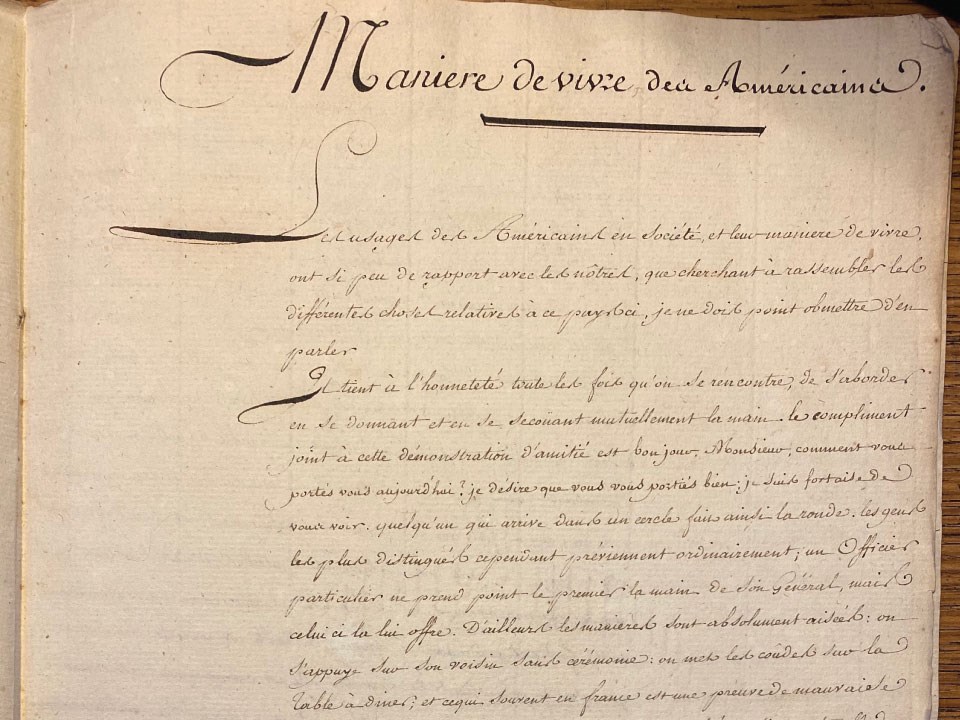 Maniere de vivre des Américains.
Les usages des Américains en Société, et leur maniere de vivre,
ont si peu de rapport avec les nôtres, que cherchant à rassembler les
différentes choses relatives à ce pays ci, je ne dois point obmettre d'en
parler
Il tient à l'honneteté toute les fois qu'on se rencontre, de s'aborder
en se donnant et en se secoüant mutuellement la main. le compliment
joint à cette démonstration d'amitié est bon jour, Monsieur, comment vous
portés vous aujourd'hui? je désire que vous vous portiés bien; je suis fort aise de
vous voir. quelqu'un qui arrive dans un cercle fait ainsi la ronde: les gens
les plus distingués cependant préviennent ordinairement; un Officier
particulier ne prend point le premier la main de son Général, mais
celui ci la lui offre. D'ailleurs les manieres sont absolument aisées: on
s'appuye sur son voisin sans cérémonie: on met les coudes sur la
table à diner; et ce qui souvent en france est une preuve de mauvaise